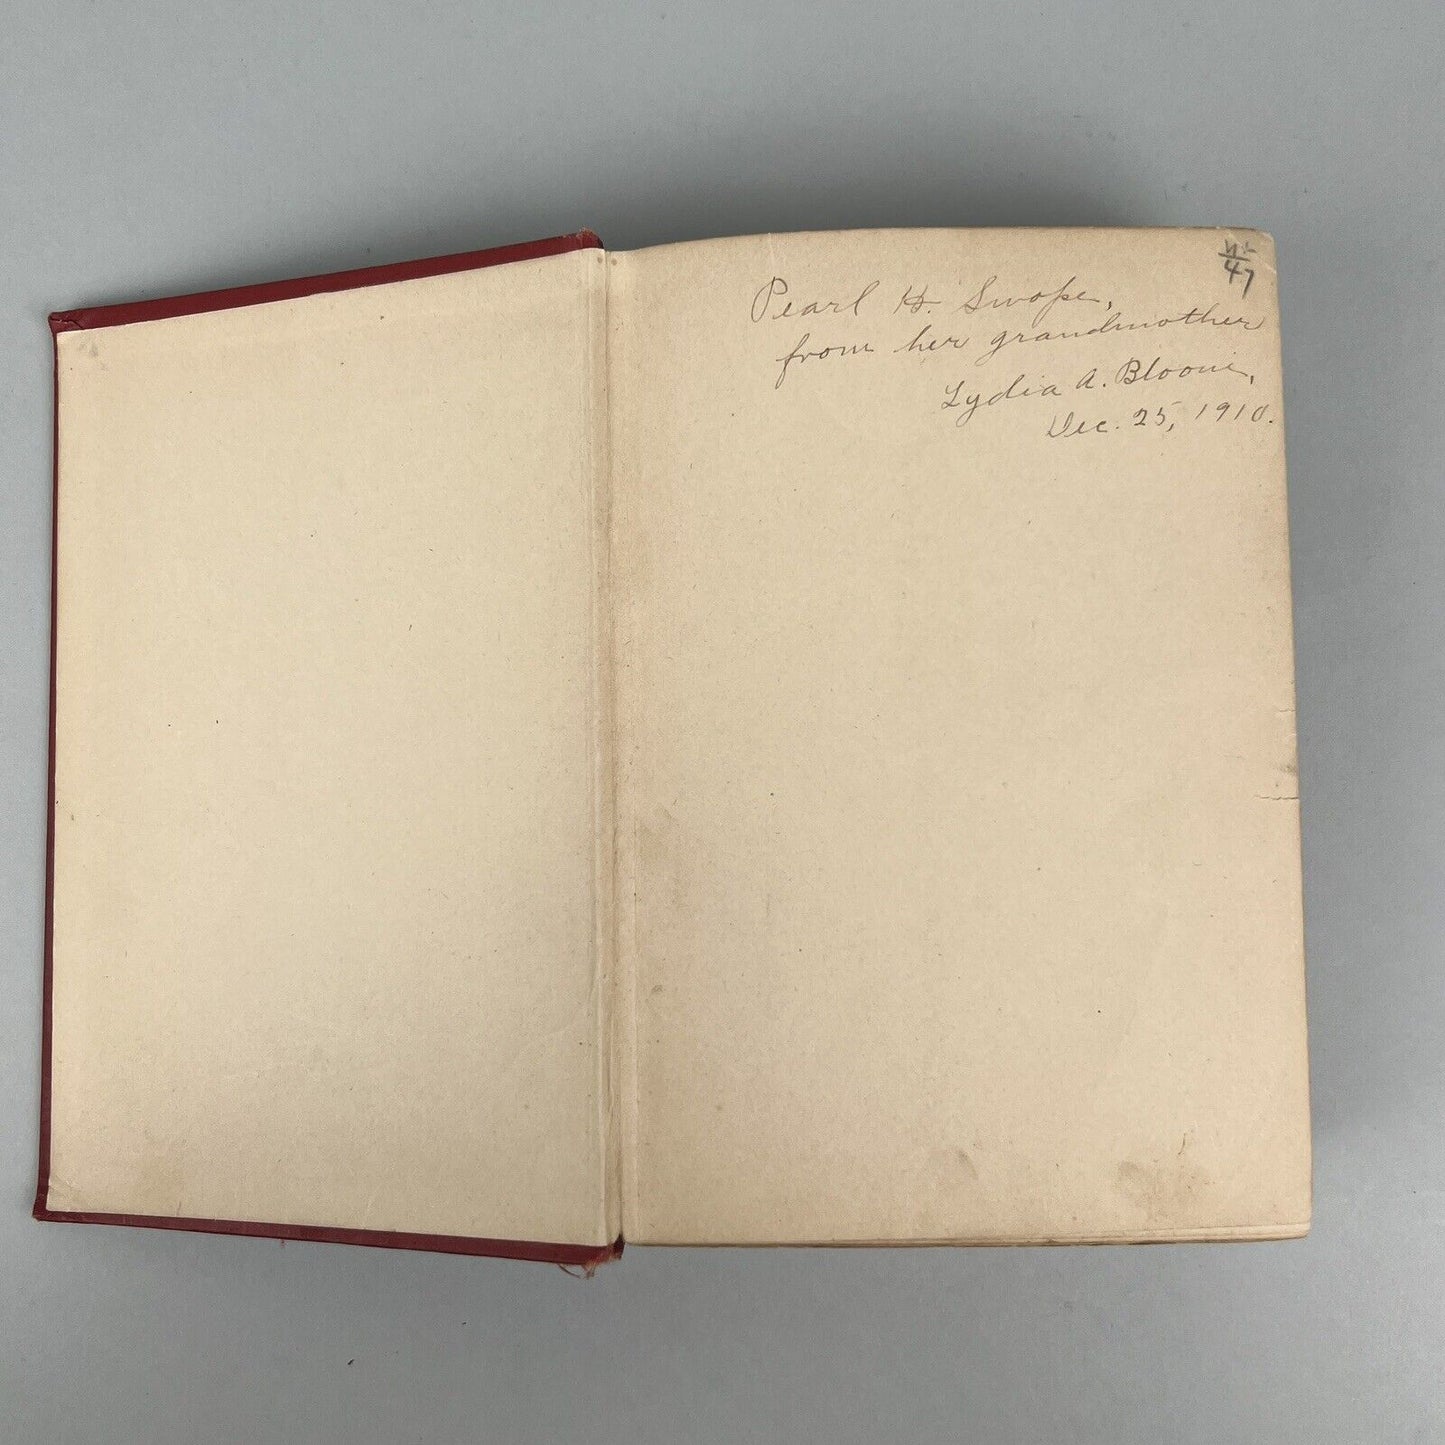 Pearl H. Swope,
from her grandmother
Lydia A. Bloom,
Dec. 25, 1910.
47